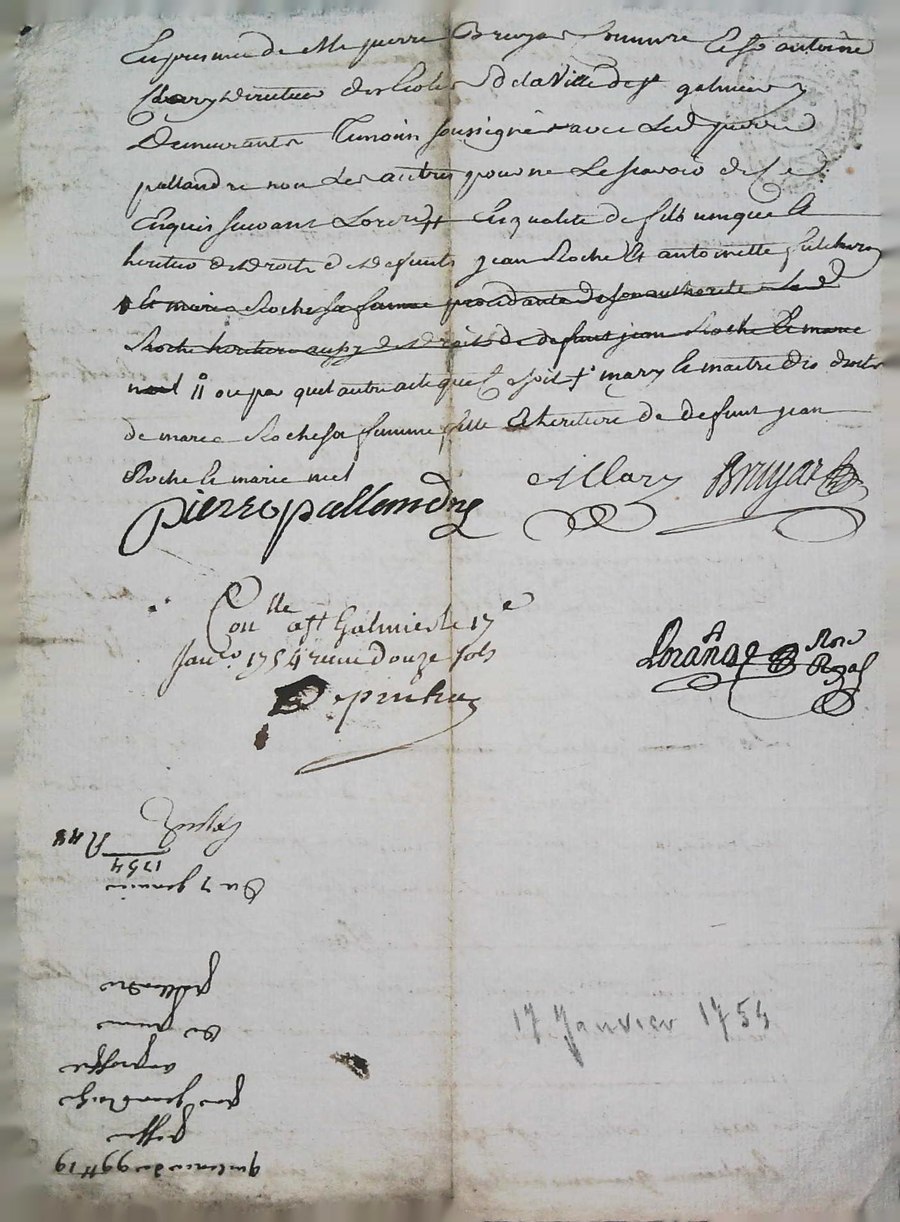 En presence de Me pierre Bruyas Sr antoine
directeur des Ecoles de la Ville de St galmier
Demeurants Temoins soussignés avec Led. pierre
pallandre non Les autres pour ne Le scavoir de ce
Enquis suivant Lord. Enqualite de fils unique &
heritier des droits des defunts jean Roche & antoinette
& marie Roche sa famme procedante de son authorité
Roche heritiere aussy des droits de defunt jean Roche le marié
ou par quel autre acte que ce soit mary & maitre des droits
de marie Roche sa famme fille & heritiere de defunt jean
Roche le marie
pierre pallandre Bruyas
Conlle a St Galmier le 17e
Janr 1754 reçu douze sols
Lorange Nore Royal
Du 7 janvier
1754
quittance de 99tt 19
par jean
pierre
pallandre
17 Janvier 1754